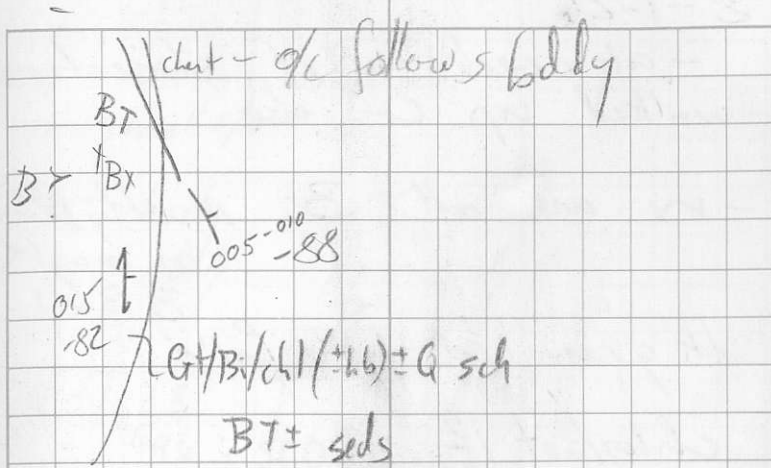 chert - o/c follows bddy
BT
± Bx
B
005-010
-88
015
-82
Gt/Bi/chl (±hb) ± Q sch
BT ± seds